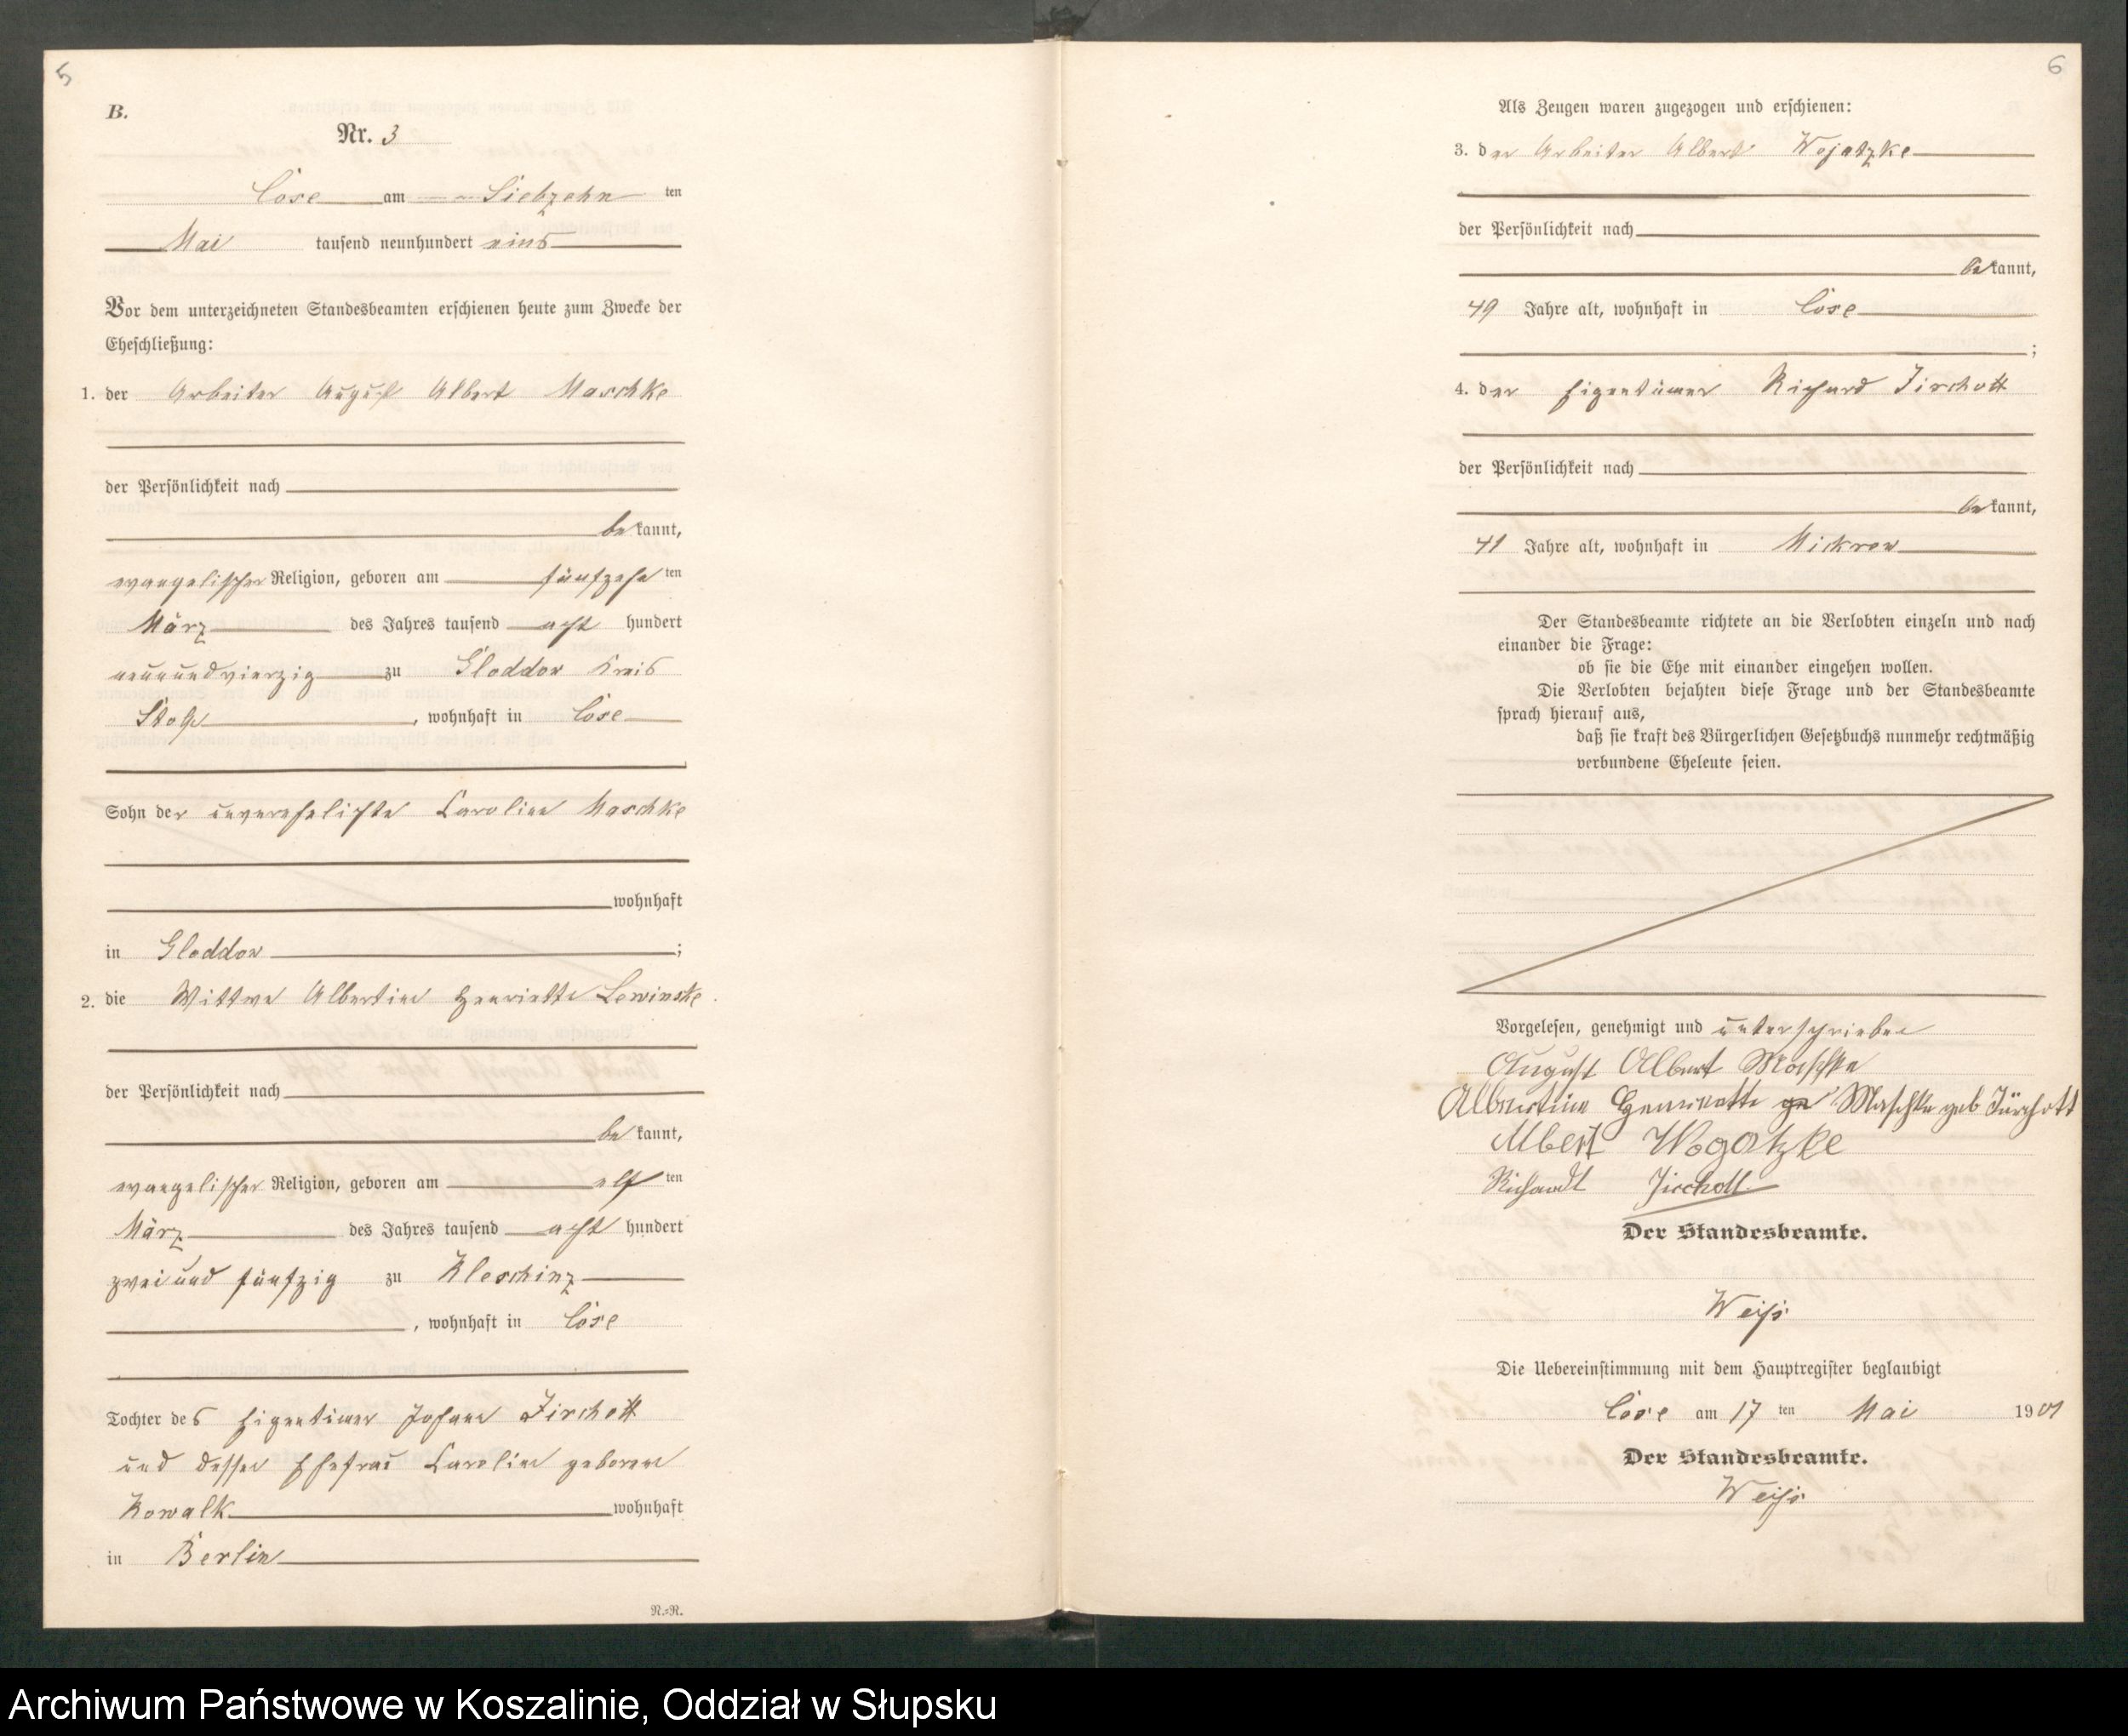 5
B.
Nr. 3
Cose am Siebzehn ten
Mai tausend neunhundert eins
Vor dem unterzeichneten Standesbeamten erschienen heute zum Zwecke der
Eheschließung:
1. der Arbeiter August Albert Maschke
der Persönlichkeit nach
bekannt,
evangelischer Religion, geboren am fünfzehn ten
März des Jahres tausend acht hundert
neunundvierzig zu Gloddow Kreis
Stolp, wohnhaft in Cose
Sohn der unverehelichte Caroline Maschke
wohnhaft
in Gloddow;
2. die Wittwe Albertine Henriette Lewinske
der Persönlichkeit nach
bekannt,
evangelischer Religion, geboren am elf ten
März des Jahres tausend acht hundert
zwei und fünfzig zu Kleschinz
, wohnhaft in Cose
Tochter des Eigentümer Johann Jirchott
und dessen Ehefrau Caroline geborene
Kowalk wohnhaft
in Berlin
N.=N.
6
Als Zeugen waren zugezogen und erschienen:
3. der Arbeiter Albert Wojatzke
der Persönlichkeit nach
bekannt,
49 Jahre alt, wohnhaft in Cose
;
4. der Eigentümer Richard Jirchott
der Persönlichkeit nach
bekannt,
41 Jahre alt, wohnhaft in Mickrow
Der Standesbeamte richtete an die Verlobten einzeln und nach
einander die Frage:
ob sie die Ehe mit einander eingehen wollen.
Die Verlobten bejahten diese Frage und der Standesbeamte
sprach hierauf aus,
daß sie kraft des Bürgerlichen Gesetzbuchs nunmehr rechtmäßig
verbundene Eheleute seien.
Vorgelesen, genehmigt und unterschrieben
August Albert Maschke
Albertine Henriette ge Maschke geb Jürchott
Albert Wogatzke
Richardt Jirchott
Der Standesbeamte.
Weiß
Die Uebereinstimmung mit dem Hauptregister beglaubigt
Cose am 17 ten Mai 1901
Der Standesbeamte.
Weiß
Archiwum Państwowe w Koszalinie, Oddział w Słupsku